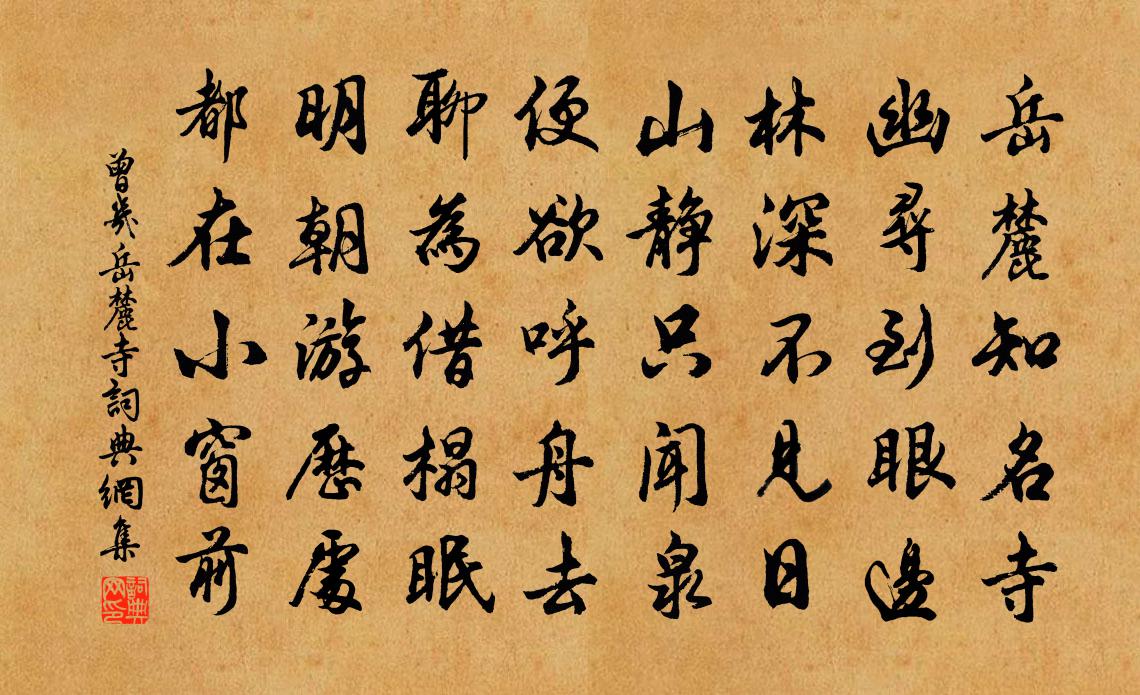 岳麓知名寺
幽尋到眼邊
林深不見日
山靜只闻泉
便欲呼舟去
聊為借榻眠
明朝游歷處
都在小窗前
曾幾岳麓寺詞典網集
詞典
网印